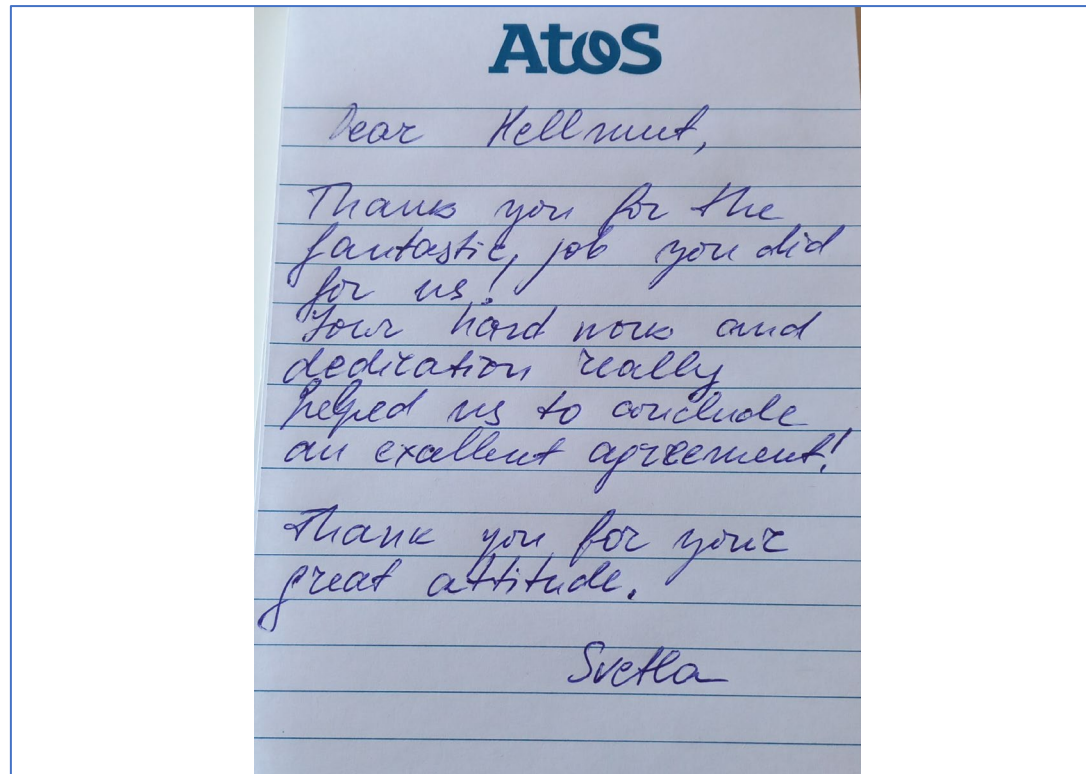 Atos
Dear Hellmut,
Thank you for the
fantastic, job you did
for us!
Your hard work and
dedication really
helped us to conclude
an exallent agreement!
Thank you for your
great attitude.
Svetla